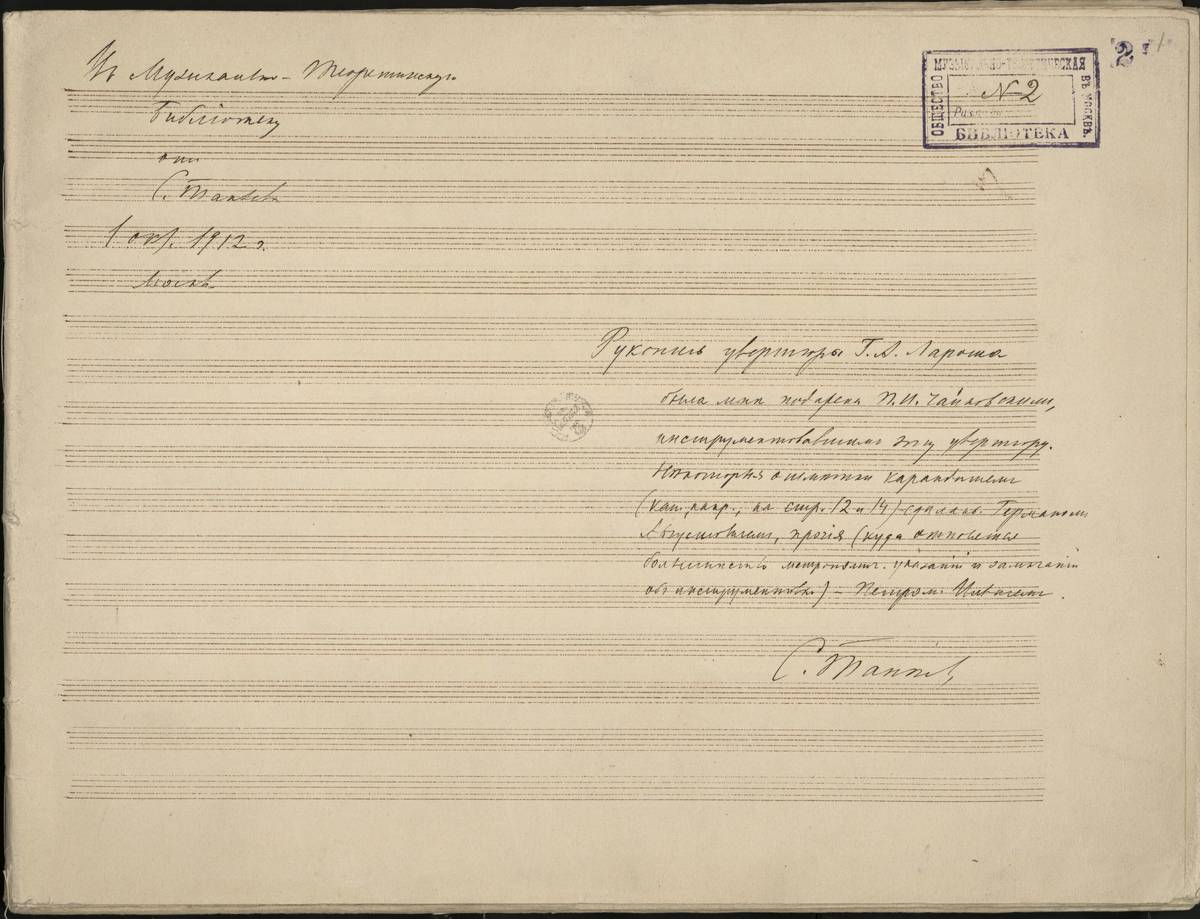 Въ Музыкально-Теоретическую
Библіотеку
отъ
С. Танѣева
1 окт. 1912 г.
Москва
2
МУЗЫКАЛЬНО-ТЕОРЕТИЧЕСКАЯ
ОБЩЕСТВО
ВЪ МОСКВѢ.
№ 2
БИБЛІОТЕКА
Рукопись увертюры Г. А. Лароша
была мнѣ подарена П. И. Чайковскимъ,
инструментовавшимъ эту увертюру.
Нѣкоторыя отмѣтки карандашемъ
(как, напр., на стр. 12 и 14) сдѣланы Германомъ
Августовичемъ, прочія (куда относятся
большинство метрономич. указаній и замѣчаній
объ инструментовкѣ) – Петромъ Ильичемъ.
С. Танѣевъ